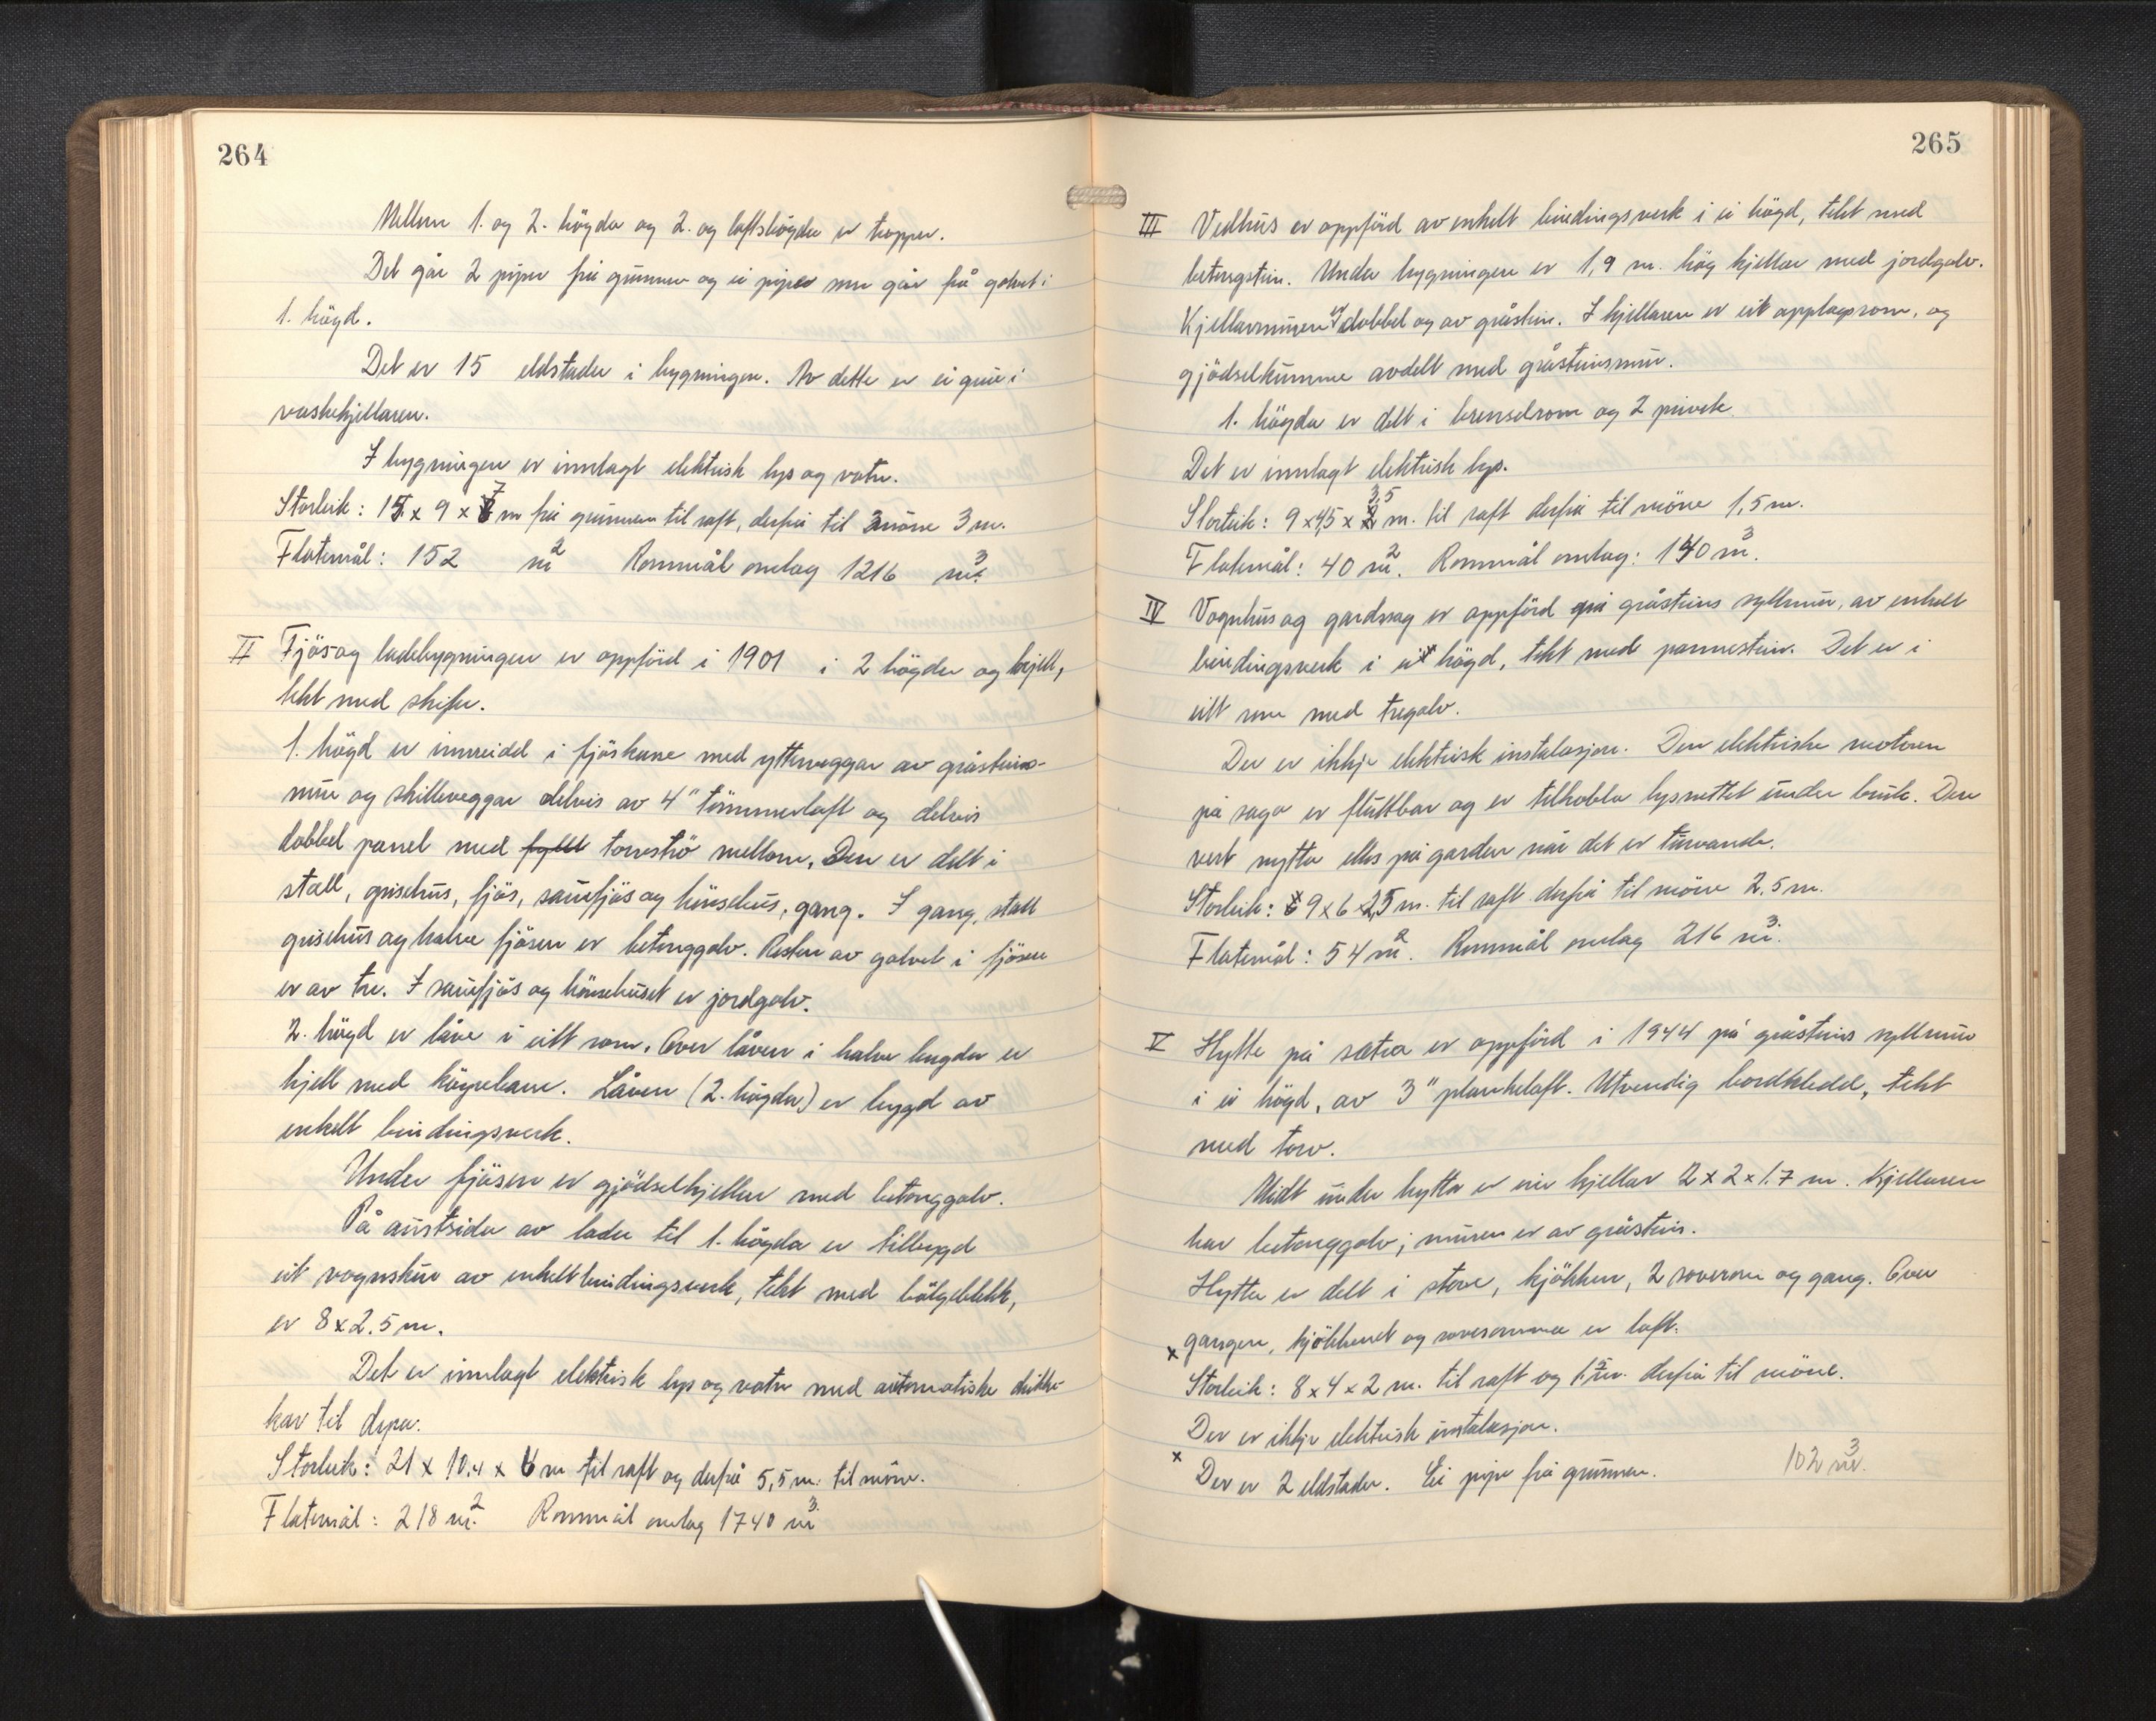 264
Mellom 1. og 2. högda og 2. og loftshögda er trapper.
Det går 2 piper frå grunnen og ei pipe som går frå golvet i
1. högd.
Det er 15 eldstader i bygningen. Av dette er ei grue i
vaskekjellaren.
I bygningen er innlagt elektrisk lys og vatn.
Storleik: 15 x 9 x 7 m frå grunnen til raft, derfrå til möne 3 m.
Flatemål: 152 m² Rommål omlag 1216 m³.
II Fjös og ladebygningen er oppförd i 1901 i 2 högder og hjell,
tekt med skifer.
1. högd er innreidd i fjöskarne med ytterveggar av gråsteins-
mur og skilleveggar delvis av 4" tömmerlaft og delvis
dobbel panel med fyllt torvströ mellom. Den er delt i
stall, grisehus, fjös, sauefjös og hönsehus, gang. I gang, stall
grisehus og halve fjösen er betonggolv. Resten av golvet i fjösen
er av tre. I sauefjös og hönsehuset er jordgolv.
2. högd er låve i eitt rom. Over låven i halve lengda er
hjell med köyrebane. Låven (2. högda) er bygd av
enkelt bindingsverk.
Under fjösen er gjödselkjellar med betonggolv.
På austsida av lada til 1. högda er tilbygd
eit vognskur av enkelt bindingsverk, tekt med bölgeblekk,
er 8 x 2.5 m.
Det er innlagt elektrisk lys og vatn med automatiske drikke-
kar til dyra.
Storleik: 21 x 10.4 x 6 m til raft og derfrå 5,5 m. til möne.
Flatemål: 218 m². Rommål omlag 1740 m³
265
III Vedhus er oppförd av enkelt bindingsverk i ei högd, tekt med
betongstein. Under bygningen er 1,9 m. hög kjellar med jordgolv.
Kjellarmuren er dobbel og av gråstein. I kjellaren er eit opplagsrom, og
gjödselkumme avdelt med gråsteinsmur.
1. högda er delt i brenselrom og 2 privek
Det er innlagt elektrisk lys.
Storleik: 9 x 4,5 x 3,5 m. til raft derfrå til möne 1,5 m.
Flatemål: 40 m². Rommål omlag: 140 m³.
IV Vognhus og gardssag er oppförd på gråsteins syllmur, av enkelt
bindingsverk i ei högd, tekt med pannestein. Det er i
eitt rom med tregolv.
Der er ikkje elektrisk instalasjon. Den elektriske motoren
på saga er fluttbar og er tilkobla lysnettet under bruk. Den
vert nytta elles på garden når det er turvande.
Storleik: 9 x 6 x 2,5 m. til raft derfrå til möne 2.5 m.
Flatemål: 54 m². Rommål omlag 216 m³.
V Hytte på sætra er oppförd i 1944 på gråsteins syllmur
i ei högd, av 3" plankelaft. Utvendig bordkledd, tekt
med torv.
Midt under hytta er ein kjellar 2 x 2 x 1.7 m. Kjellaren
har betonggolv; muren er av gråstein.
Hytta er delt i stove, kjökken, 2 soverom og gang. Over
x gangen, kjökkenet og soveromma er loft.
Storleik: 8 x 4 x 2 m. til raft og 1,5 m. derfrå til möne.
Der er ikkje elektrisk instalasjon.
x Der er 2 eldstader. Ei pipe frå grunnen. 102 m³.